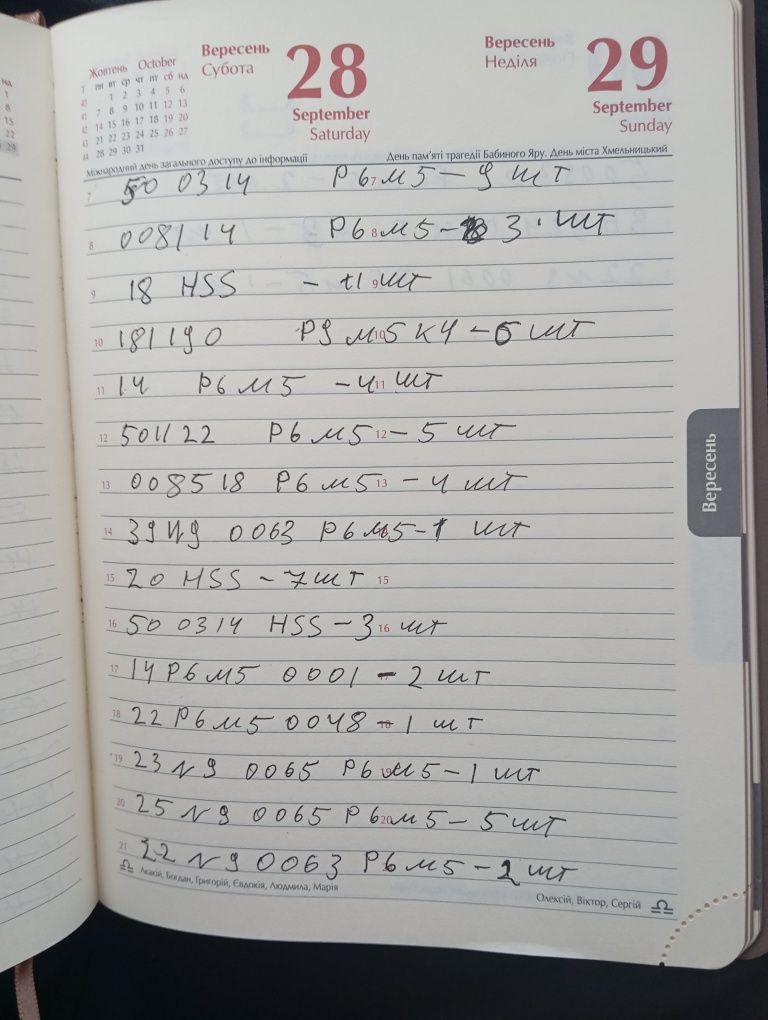 Жовтень October
Т пн вт ср чт пт сб нд
40 1 2 3 4 5 6
41 7 8 9 10 11 12 13
42 14 15 16 17 18 19 20
43 21 22 23 24 25 26 27
44 28 29 30 31
Вересень
Субота
28
September
Saturday
Вересень
Неділя
29
September
Sunday
Міжнародний день загального доступу до інформації
День пам'яті трагедії Бабиного Яру. День міста Хмельницький
7 500314 Р6 7 М5 - 9 шт
8 008114 Р6 8 М5 - 3 шт
9 18 HSS - 11 9 шт
10 181190 Р9 М 10 5 К4 - 6 шт
11 14 Р6М5 - 4 11 шт
12 501122 Р6М5 12 - 5 шт
13 008518 Р6М5 13 - 4 шт
14 39 №9 0063 Р6М5 - 1 шт
15 20 HSS - 7 шт 15
16 500314 HSS - 3 16 шт
17 14 Р6М5 0001 - 2 шт
18 22 Р6М5 0048 18 - 1 шт
19 23 №9 0065 Р6 19 М5 - 1 шт
20 25 №9 0065 Р6 20 М5 - 5 шт
21 22 №9 0063 Р6М5 - 2 шт
Акакій, Богдан, Григорій, Євдокія, Людмила, Марія
Олексій, Віктор, Сергій
Вересень